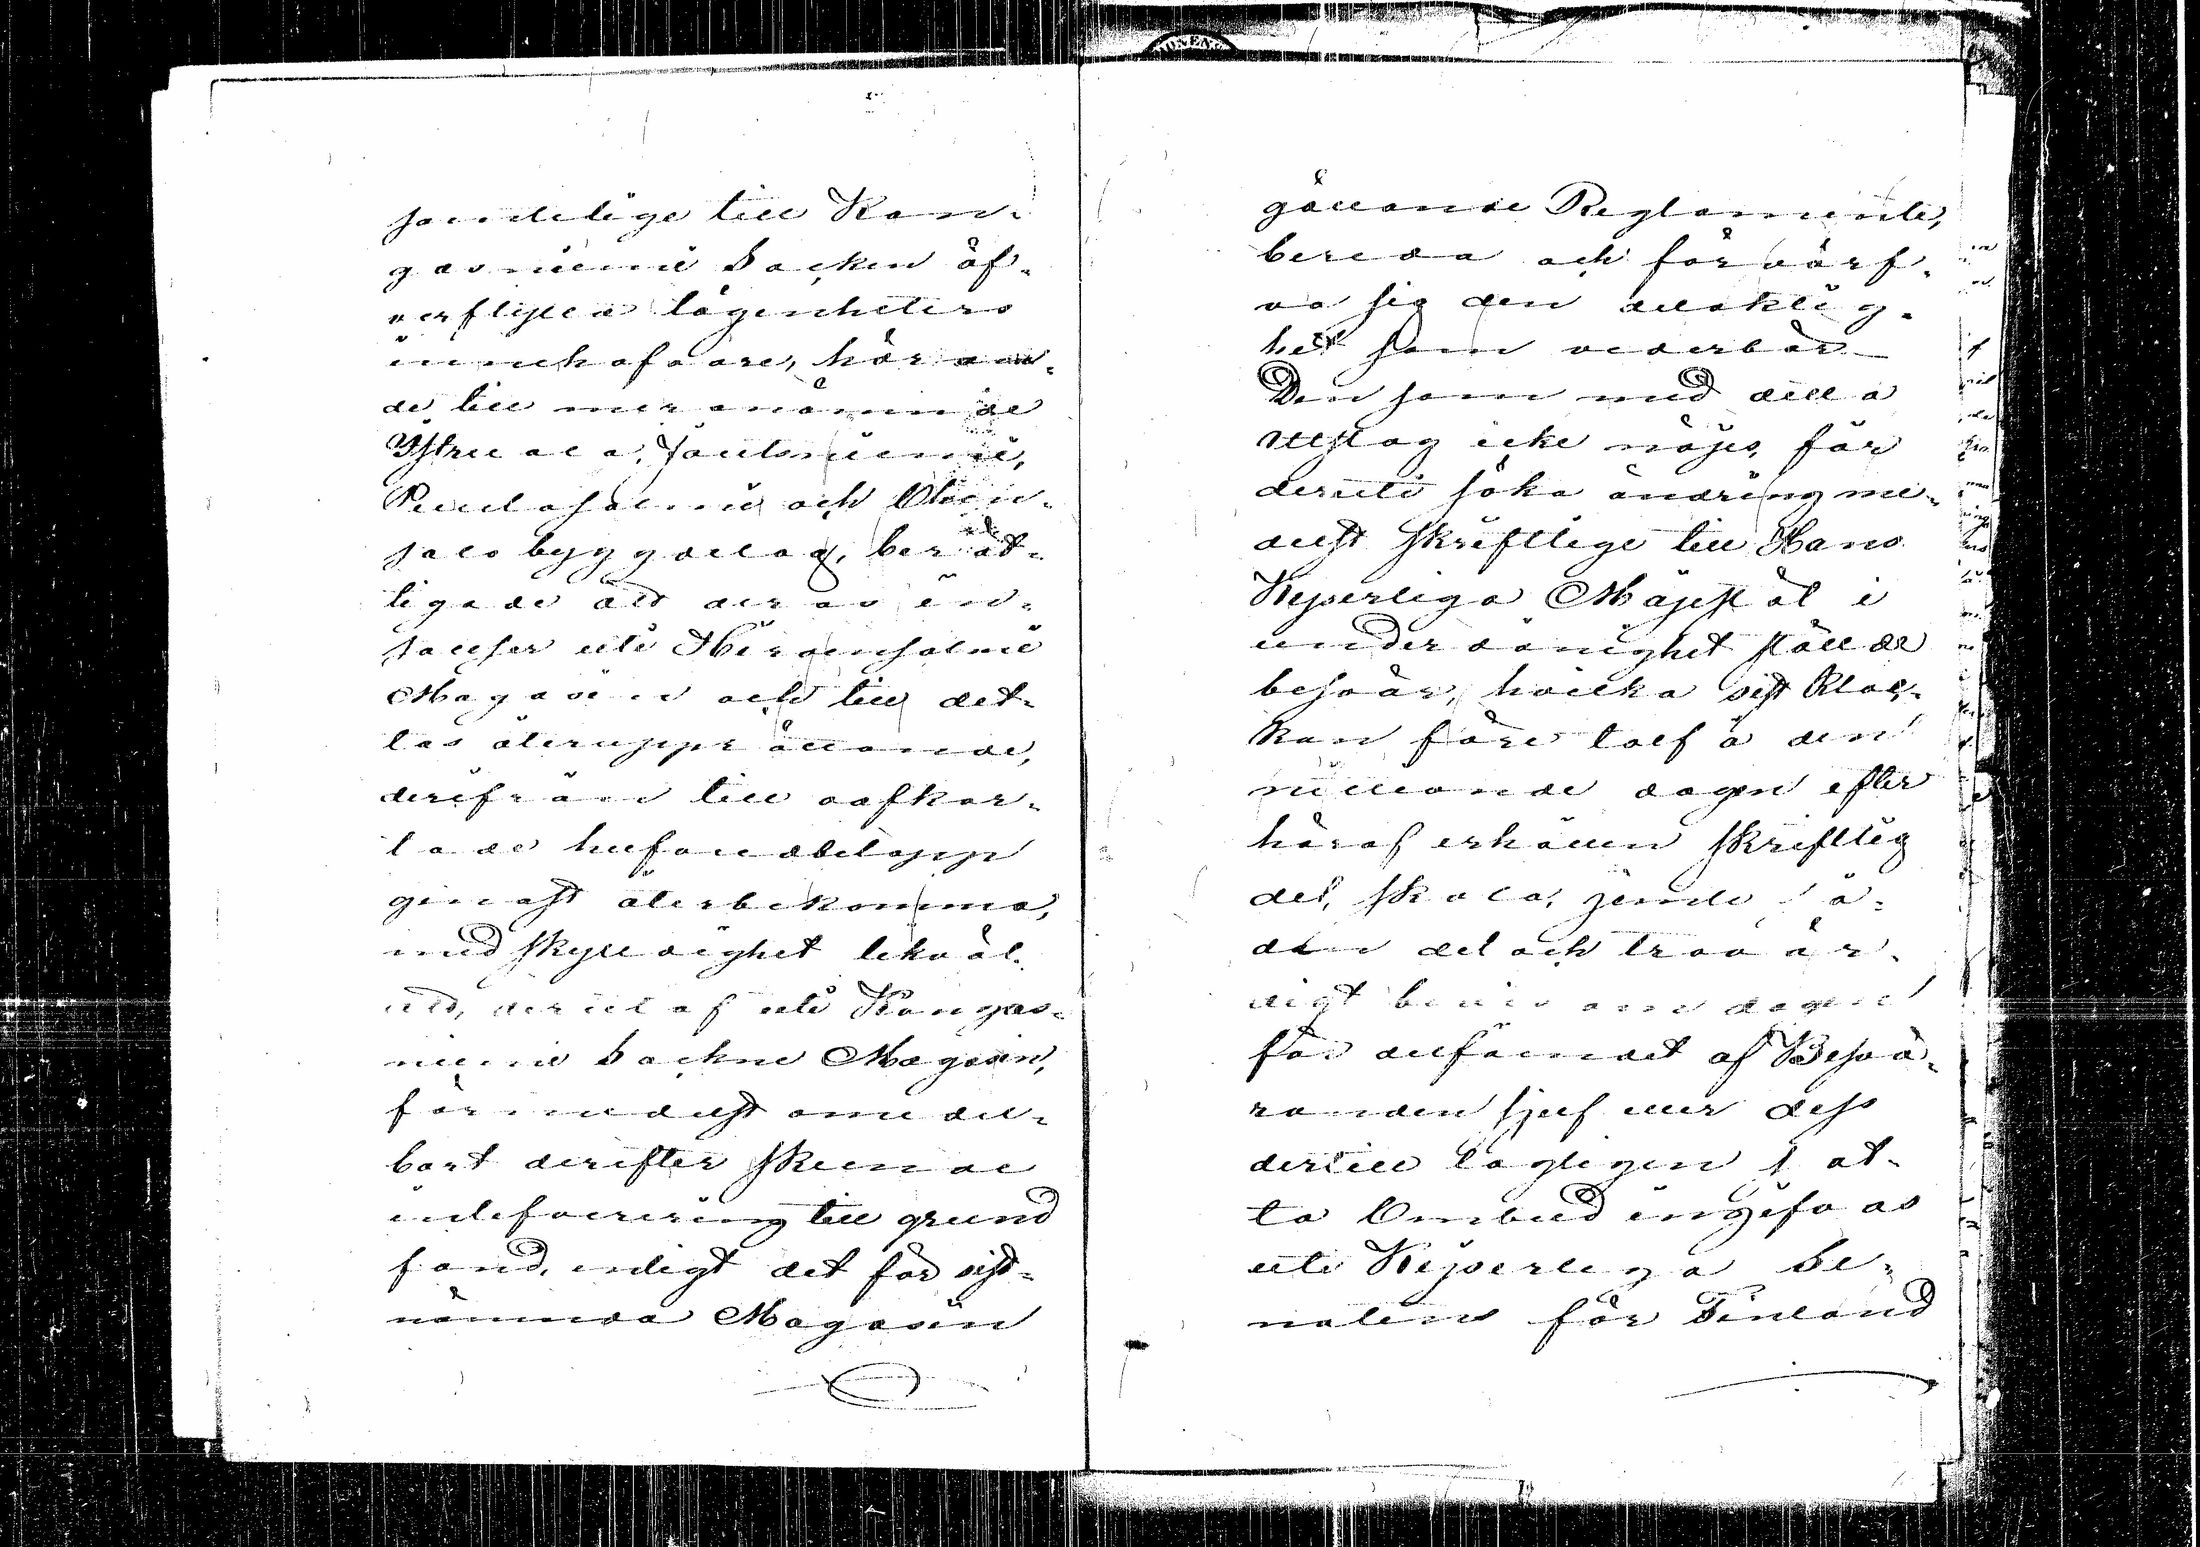 samtelige till Kan-
gasniemi Socken öf-
verflyttade lägenheters
innehafvare, höran-
de till meranämnde
Istruala, Soutniemi,
Pendasalmi och Oloin-
salo byggdelag, berät-
tigade att deras in-
satser uti Hirvensalmi
Magasin och till det-
tas återupprättande,
derifrån till oafkor-
tade hufvudbelopp
genast återbekomma,
med skyldighet likväl
att, derutaf uti Kangas-
niemi Sockne Magasin,
förmedelst omedel-
bart derefter skeende
inlefverering till grund
fond, enligt det för sist-
nämnda Magasin
gällande Reglemente,
bereda och förvärf-
va sig den delaktig-
het som vederbör.
Den som med detta
utslag icke nöjes, får
deruti söka ändring me-
delst skriftlige till Hans
Kejserliga Majestät i
underdånighet ställde
besvär, hvilka sist Kloc-
kan före tolf å den
nittionde dagen efter
häraf erhållen skriftlig
del, skola, jemte så-
dan del och trovär-
digt bevis om dagen
för delfåendet af Besvä-
randen sjelf eller dess
dertill lagligen satt-
ta Ombud ingifvas
uti Kejserliga Se-
naten för Finland